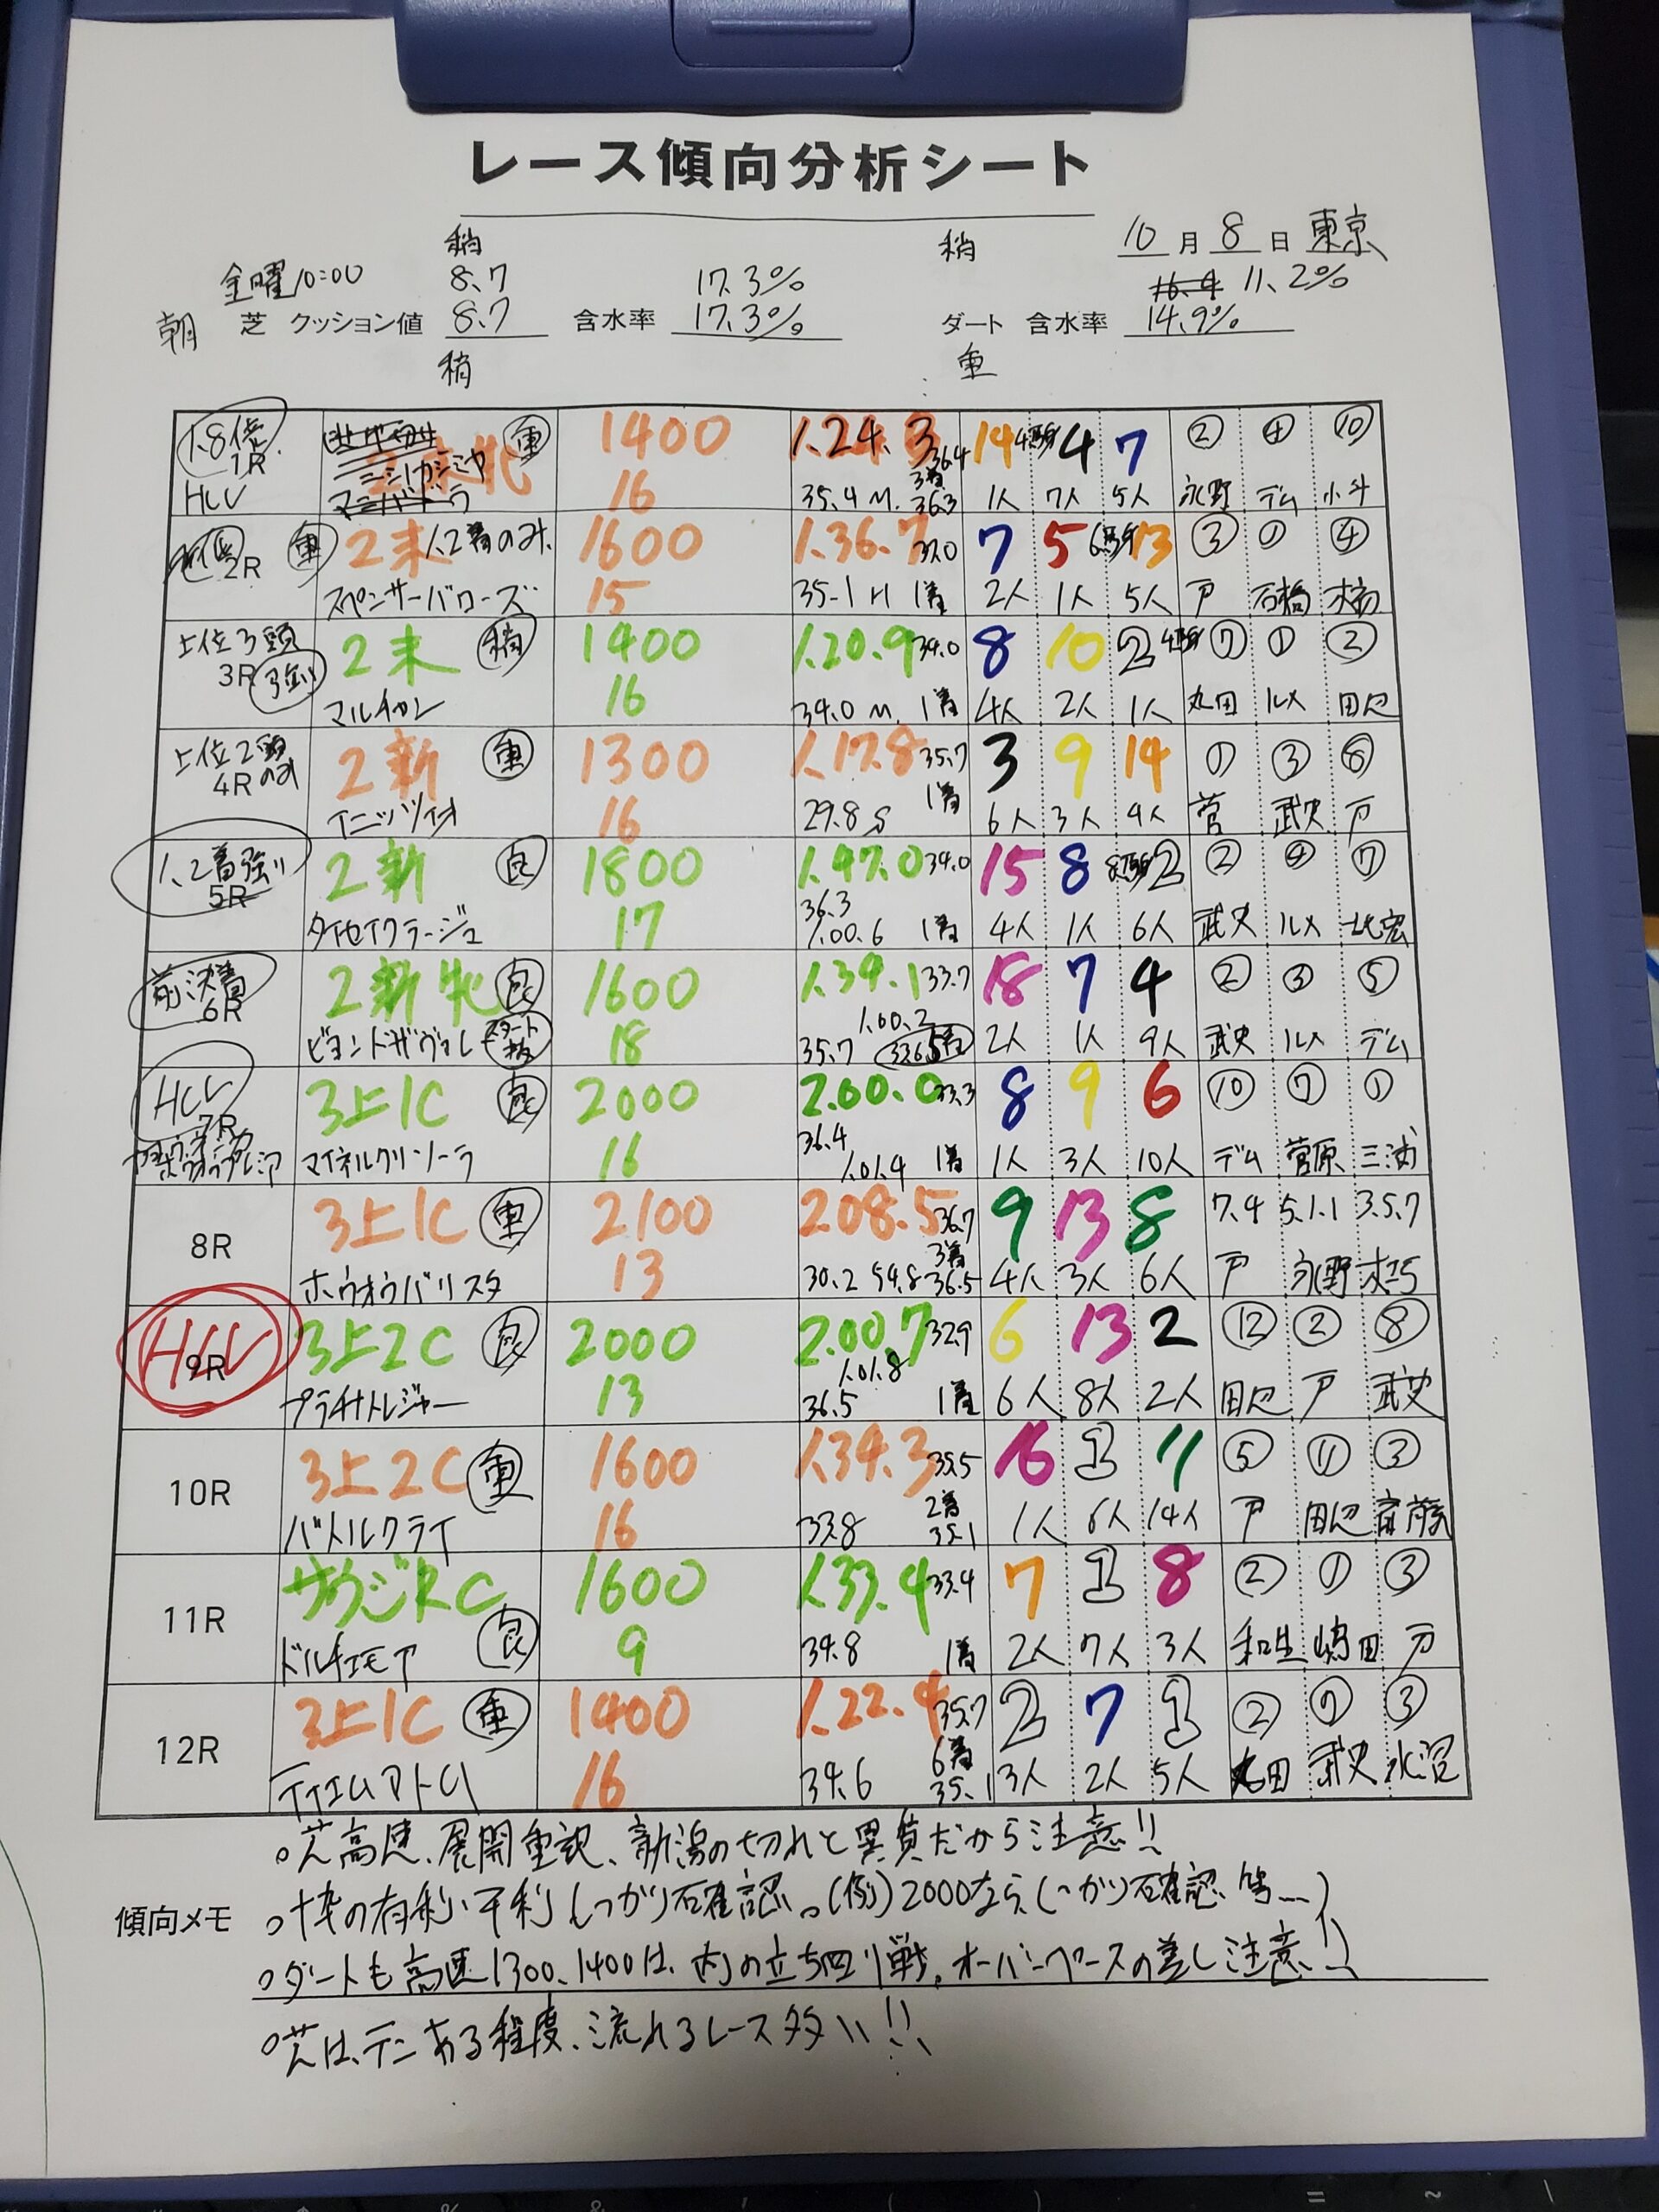 レース傾向分析シート
稍 稍 10月8日 東京
金曜10:00 8.7 17.3% 11.2%
朝 芝 クッション値 8.7 含水率 17.3% ダート 含水率 14.9%
稍 重
1.8倍 重 1400 1.24.3 36.4 14 4 7 ② ④ ⑩
1R
HLV ニシノカシミヤ 16 35.4 M. 3着 36.3 1人 7人 5人 永野 デム 小斗
2R 重 2未 1.2着のみ. 1600 1.36.7 37.0 7 5 13 ③ ① ④
スペンサーバローズ 15 35-1 H 1着 2人 1人 5人 戸 石橋 木幡
上位3頭 2未 稍 1400 1.20.9 34.0 8 10 2 ⑦ ① ②
3R 強い
マルチャン 16 34.0 M. 1着 4人 2人 1人 丸田 ルメ 田辺
上位2頭 2新 重 1300 1.17.8 35.7 3 9 14 ① ③ ⑥
4R のみ
イニッツィオ 16 29.8 S 1着 6人 3人 4人 菅 武史 戸
1、2着強い 2新 良 1800 1.47.0 34.0 15 8 2 ② ④ ⑦
5R
タイセイクラージュ 17 36.3 1.00.6 1着 4人 1人 6人 武史 ルメ 北宏
前決着 2新牝 良 1600 1.34.1 33.7 18 7 4 ② ③ ⑤
6R
ビヨンドザヴァレ 18 35.7 1.00.2 2人 1人 9人 武史 ルメ デム
HLV 3上1C 良 2000 2.00.0 33.3 8 9 6 ⑩ ⑦ ①
7R
マイネルクリソーラ 16 36.4 1.01.4 1着 1人 3人 10人 デム 菅原 三浦
3上1C 重 2100 2.08.5 36.7 9 13 8 7.4 5.1.1 3.5.7
8R
ホウオウバリスタ 13 30.2 54.8 3着 36.5 4人 3人 6人 戸 永野 木巧
HLV 3上2C 良 2000 2.00.7 32.9 6 13 2 ⑫ ② ⑧
9R
プラチナトレジャー 13 36.5 1.01.8 1着 6人 8人 2人 田辺 戸 武史
3上2C 重 1600 1.34.3 35.5 16 1 11 ⑤ ① ③
10R
バトルクライ 16 33.8 2着 35.1 1人 6人 14人 戸 田辺 斎藤
サウジRC 良 1600 1.33.4 33.4 7 1 8 ② ① ③
11R
ドルチェモア 9 34.8 1着 2人 7人 3人 和生 嶋田 戸
3上1C 重 1400 1.22.4 35.7 2 7 1 ② ⑦ ③
12R
テイエムアトム 16 34.6 6着 35.1 3人 2人 5人 丸田 武史 水沼
○芝高速、展開重視、新潟の切れと異質だから注意!!
傾向メモ ○枠の有利・不利しっかり確認。(例)2000なら、しっかり確認、等…)
○ダートも高速1300、1400は、内の立ち回り戦。オーバーペースの差し注意!!
○芝は、テンある程度、流れるレース多い!!